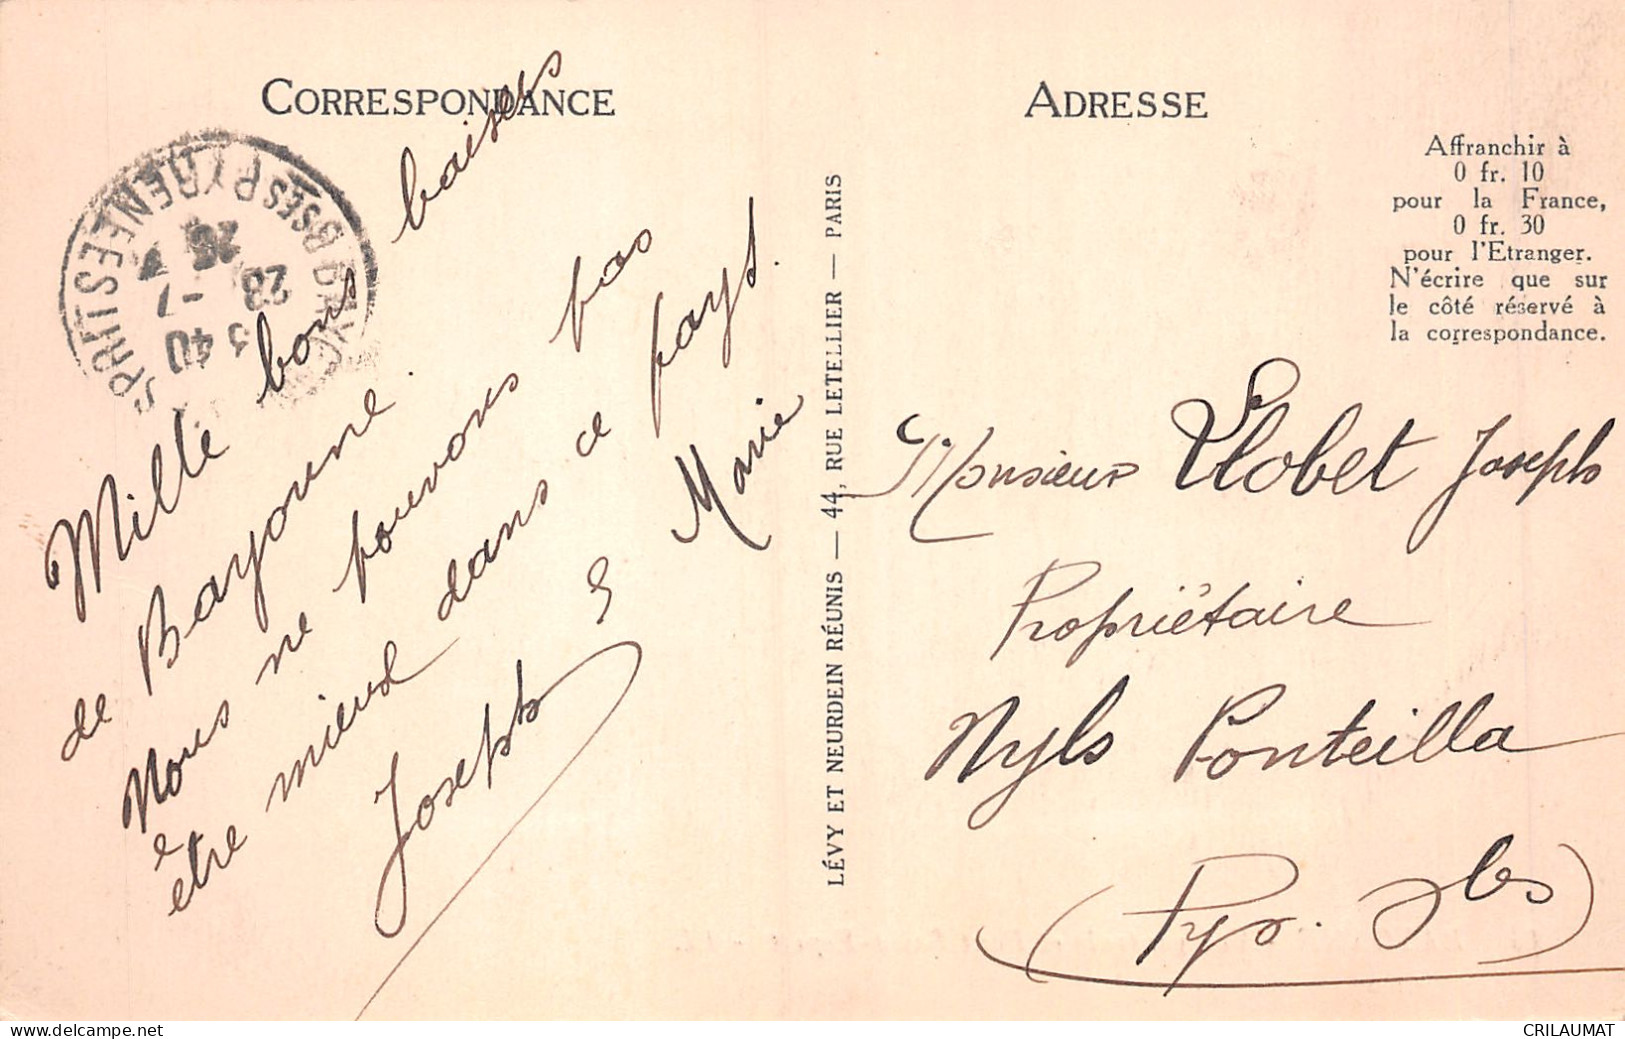 CORRESPONDANCE
Mille bons baisers
de Bayonne.
Nous ne pouvons pas
être mieux dans ce pays.
Joseph & Marie
LÉVY ET NEURDEIN RÉUNIS — 44, RUE LETELLIER — PARIS
ADRESSE
Affranchir à
0 fr. 10
pour la France,
0 fr. 30
pour l'Etranger.
N'écrire que sur
le côté réservé à
la correspondance.
Monsieur Llobet Joseph
Propriétaire
Nyls Ponteilla
(Pyr. Oles)
BSES PYRENEES
28
-7
CRILAUMAT